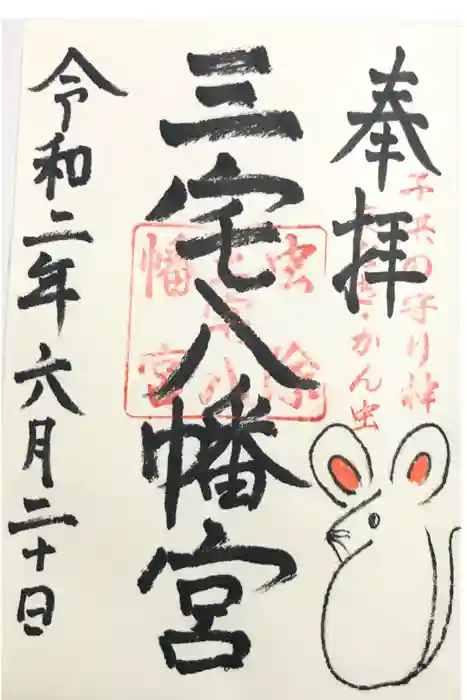 奉拝
子供の守り神
かん虫
三宅八幡宮
虫除
三宅八
幡宮
令和二年六月二十日